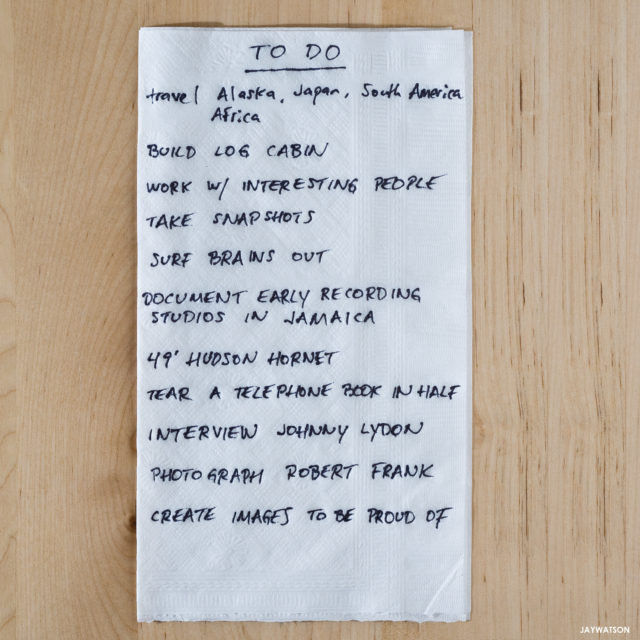 TO DO
travel Alaska, Japan, South America
Africa
BUILD LOG CABIN
WORK W/ INTERESTING PEOPLE
TAKE SNAPSHOTS
SURF BRAINS OUT
DOCUMENT EARLY RECORDING
STUDIOS IN JAMAICA
49' HUDSON HORNET
TEAR A TELEPHONE BOOK IN HALF
INTERVIEW JOHNNY LYDON
PHOTOGRAPH ROBERT FRANK
CREATE IMAGES TO BE PROUD OF
JAYWATSON